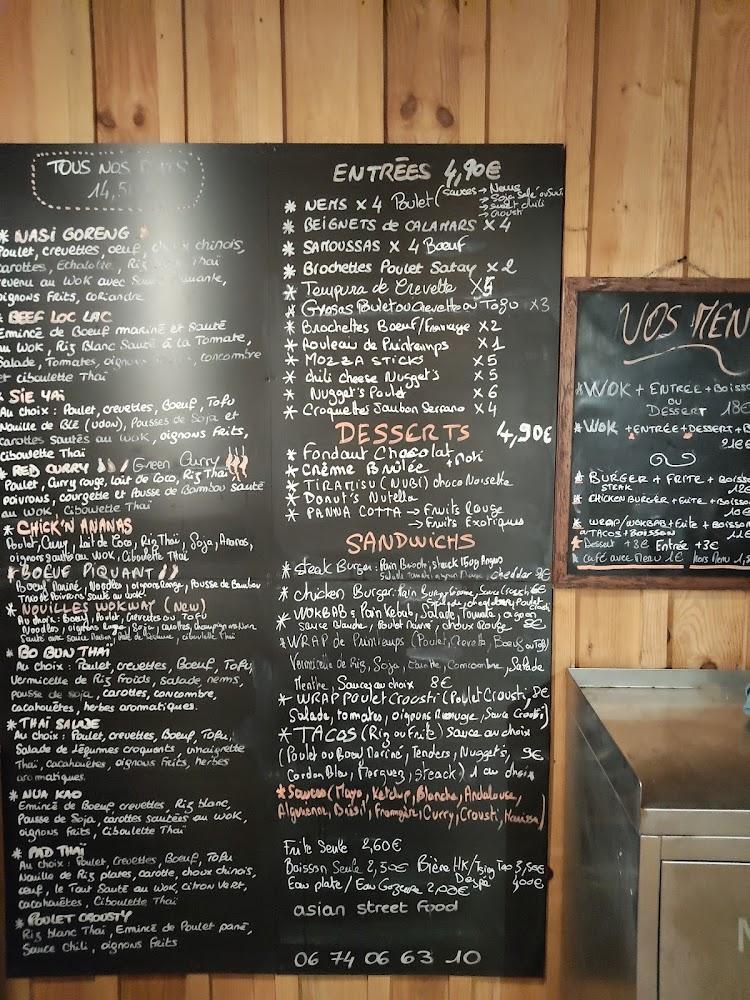 TOUS NOS
14,5
* NASI GORENG
Poulet, crevettes, oeuf, chinois,
carottes, Echalotte, Riz Thaï
revenu au WOK avec
oignons Frits, coriandre
* BEEF LOC LAC
Emincé de Boeuf mariné et Sauté
au Wok, Riz Blanc Sauté à la Tomate,
Salade, Tomates, oignons concombre
et ciboulette Thaï
* SIE YAI
Au choix : Poulet, crevettes, Boeuf, Tofu
Nouille de BLE (udon), Pousses de Soja et
carottes sautés au WOK, oignons Frits,
Ciboulette Thaï
* RED CURRY Green Curry
Poulet, Curry rouge, Lait de Coco, Riz Thaï
poivrons, courgette et Pousse de Bambou sauté
au WOK, Ciboulette Thaï
* CHICK'N ANANAS
Poulet, Curry, Lait de Coco, Riz Thaï, Soja, Ananas,
oignons sauté au WOK, Ciboulette Thaï
* BOEUF PIQUANT
Boeuf Mariné, Noodles, oignons rouge, Pousse de Bambou
Trio de Poivrons sauté au wok.
* NOUILLES WOKWAY (NEW)
Au choix : Boeuf, Poulet, Crevettes ou Tofu
Noodles, oignons Rouge, Soja, carottes, champignons Noir
Sauté avec sauce ciboulette Thaï
* BO BUN THAI
Au choix : Poulet, crevettes, Boeuf, Tofu
Vermicelle de Riz Froids, salade, nems,
pousse de soja, carottes, concombre,
cacahouètes, herbes aromatiques.
* THAI SALADE
Au choix : Poulet, crevettes, Boeuf, Tofu
Salade de légumes croquants, vinaigrette
Thaï, cacahuètes, oignons Frits, herbes
aromatiques.
* NUA KAO
Emincé de Boeuf crevettes, Riz blanc,
Pousse de Soja, carottes sautées au WOK,
oignons frits, Ciboulette Thaï
* PAD THAÏ
Au choix : Poulet, Crevettes, Boeuf, Tofu
Nouille de Riz plates, carotte, choux chinois,
oeuf, le Tout Sauté au WOK, citron Vert,
cacahouètes, Ciboulette Thaï
* POULET CROUSTY
Riz blanc Thaï, Emincé de Poulet pané,
Sauce Chili, oignons Frits
ENTRÉES 4,90€
* NEMS X 4 Poulet (sauces → Nems
→ Soja Salé ou Sucré
→ sweet chili
→ Crousti
* BEIGNETS de CALAMARS X 4
* SAMOUSSAS X 4 Boeuf
* Brochettes Poulet Satay X 2
* Tempura de Crevette X5
* Gyosas Poulet ou Crevette ou Tofu X3
* Brochettes Boeuf/Fromage X2
* Rouleau de Printemps X 1
* MOZZA STICKS X 5
* Chili Cheese Nugget's X 5
* Nugget's Poulet X 6
* Croquettes Jambon Serrano X 4
DESSERTS 4,90€
* Fondant Chocolat
* Crème Brûlée + Moki
* TIRAMISU (NUBI) choco Noisette
* Donut's Nutella
* PANNA COTTA → Fruits Rouge
→ Fruits Exotiques
SANDWICHS
* Steak Burger: Pain Brioché, steack 150g Angus
Salade Cheddar 9€
* Chicken Burger: Pain Burger
* WOKBAB: Pain Kebab, Salade, Tomate, oignon
sauce blanche, Poulet mariné, choux Rouge 8€
* WRAP de Printemps (Poulet, Crevette, Boeuf ou Tofu)
Vermicelle de Riz, Soja, Carotte, Concombre, Salade
Menthe, Sauces au choix 8€
* WRAP POULET CROUSTI (Poulet Crousti, 8€
Salade, tomates, oignons Rouge, Sauce Crousti)
* TACOS (Riz ou Frite) sauce au choix
(Poulet ou Boeuf Mariné, Tenders, Nuggets, 9€
Cordon Bleu, Merguez, Steack) 1 au choix
* Sauces (Mayo, Ketchup, Blanche, Andalouse,
Algérienne, Brésil, Fromagère, Curry, Crousti, Harissa)
Frite Seule 2,60€
Boisson Seule 2,50€ Bière HK/Tsing Tao 3,50€
Eau plate / Eau Gazeuse 2,00€ Despé 4,00€
asian street food
06 74 06 63 10
VOS MEN
* WOK + ENTREE + BOISS
OU
DESSERT 18€
* WOK + ENTRÉE + DESSERT + B
21€
* BURGER + FRITE + BOISS
STEAK 12€
* CHICKEN BURGER + FRITE + BOISSON
10€
* WRAP/WOKBAB + Frite + BOISSON
* TACOS + BOISSON 11€
* Dessert +3€ Entrée +3€
* café avec Menu 1€ hors Menu 1,5